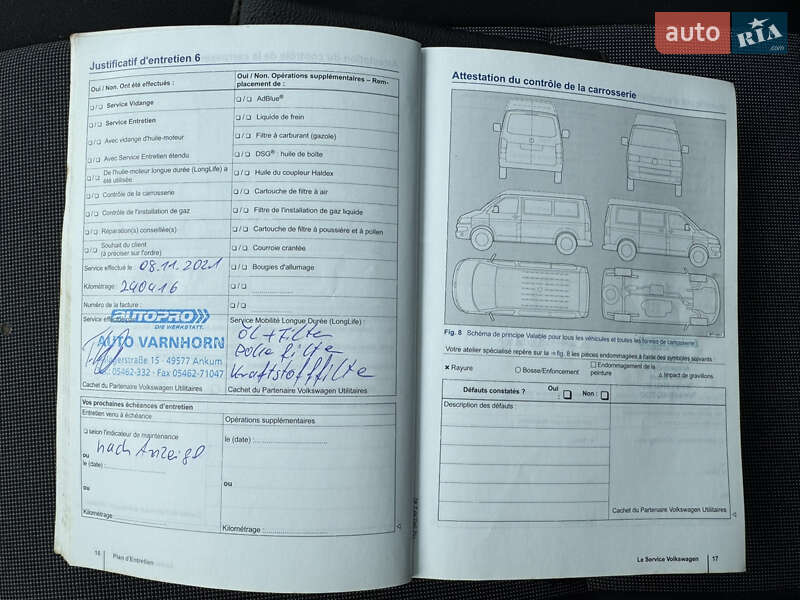 auto RIA.com
Justificatif d'entretien 6
Oui / Non. Ont été effectués :
❏ / ❏ Service Vidange
❏ / ❏ Service Entretien
❏ / ❏ Avec vidange d'huile-moteur
❏ / ❏ Avec Service Entretien étendu
❏ / ❏ De l'huile-moteur longue durée (LongLife) a
été utilisée
❏ / ❏ Contrôle de la carrosserie
❏ / ❏ Contrôle de l'installation de gaz
❏ / ❏ Réparation(s) conseillée(s)
❏ / ❏ Souhait du client
(à préciser sur l'ordre)
Service effectué le : 08.11.2021
Kilométrage : 240416
Numéro de la facture :
Service effectué
AUTOPRO
DIE WERKSTATT.
AUTO VARNHORN
straße 15 · 49577 Ankum
Tel. 05462-332 · Fax 05462-71047
Cachet du Partenaire Volkswagen Utilitaires
Oui / Non. Opérations supplémentaires – Rem-
placement de :
❏ / ❏ AdBlue®
❏ / ❏ Liquide de frein
❏ / ❏ Filtre à carburant (gazole)
❏ / ❏ DSG® : huile de boîte
❏ / ❏ Huile du coupleur Haldex
❏ / ❏ Cartouche de filtre à air
❏ / ❏ Filtre de l'installation de gaz liquide
❏ / ❏ Cartouche de filtre à poussière et à pollen
❏ / ❏ Courroie crantée
❏ / ❏ Bougies d'allumage
❏ / ❏
❏ / ❏
Service Mobilité Longue Durée (LongLife) :
Öl + Filter
Pollenfilter
Kraftstofffilter
Cachet du Partenaire Volkswagen Utilitaires
Vos prochaines échéances d'entretien
Entretien venu à échéance
❏ selon l'indicateur de maintenance
nach Anzeige
ou
le (date) :
ou
Kilométrage :
Opérations supplémentaires
le (date) :
ou
Kilométrage :
16 Plan d'Entretien
Attestation du contrôle de la carrosserie
Fig. 8 Schéma de principe Valable pour tous les véhicules et toutes les formes de carrosserie.
Votre atelier spécialisé repère sur la ⇒ fig. 8 les pièces endommagées à l'aide des symboles suivants :
✖ Rayure
○ Bosse/Enfoncement
☐ Endommagement de la
peinture
△ Impact de gravillons
Défauts constatés ? Oui : ❏ Non : ❏
Description des défauts :
Cachet du Partenaire Volkswagen Utilitaires
Le Service Volkswagen 17